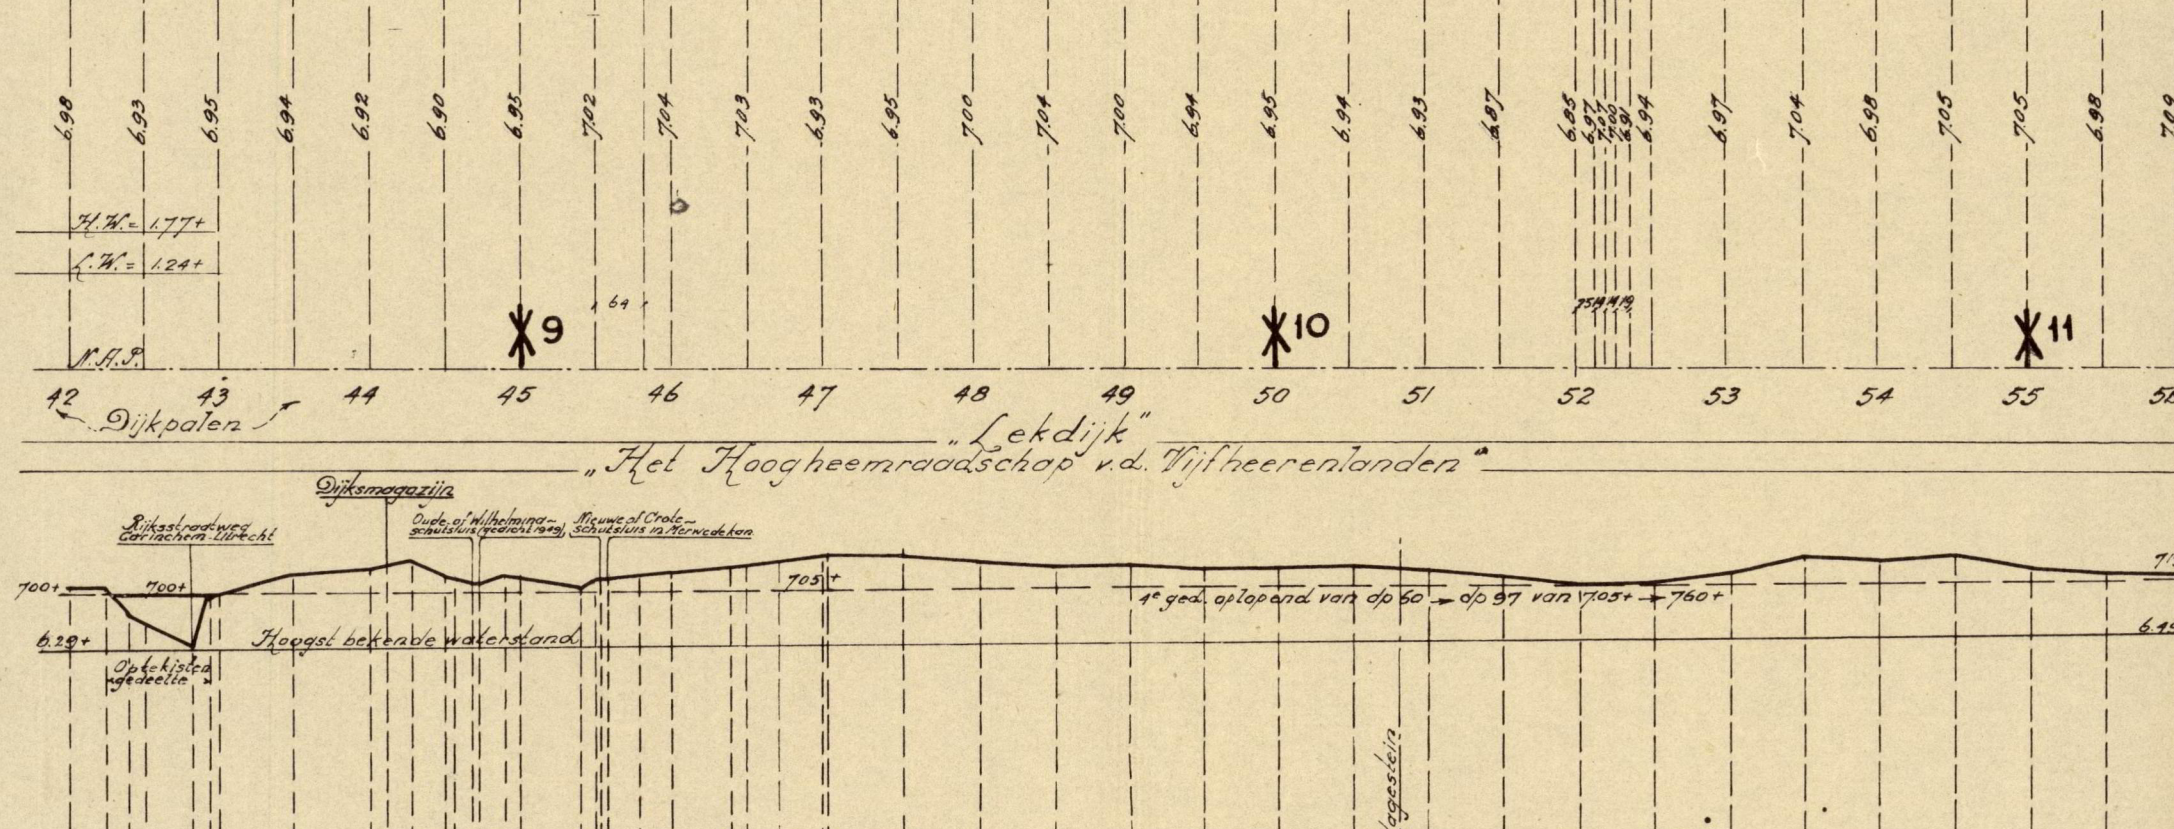 6.98 6.93 6.95 6.94 6.92 6.90 6.95 7.02 7.04 7.03 6.93 6.95 7.00 7.04 7.00 6.94 6.95 6.94 6.93 6.87 6.85 6.97 7.07 7.00 6.91 6.94 6.97 7.04 6.98 7.05 7.05 6.98
H.W. = 1.77+
L.W. = 1.24+
64
9 10 11
N.A.P.
42 43 44 45 46 47 48 49 50 51 52 53 54 55
Dijkpalen
„Lekdijk"
„Het Hoogheemraadschap v.d. Vijfheerenlanden"
Dijksmagazijn
Rijksstraatweg
Gorinchem-Utrecht
Oude of Wilhelmina~
schutsluis (gedicht 1949)
Nieuwe of Grote~
schutsluis in Merwedekan.
700+ 700+ 705+
4e ged. oplopend van dp 60 → dp 97 van 7.05+ → 760+
6.29+ Hoogst bekende waterstand
Op te kisten
gedeelte
agestein